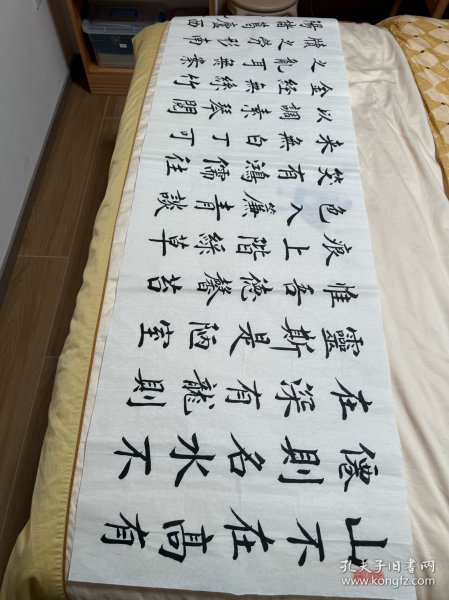 山不在高有
僊則名水不
在深有龍則
靈斯是陋室
惟吾德馨苔
痕上階綠草
色入簾青談
笑有鴻儒往
來無白丁可
以調素琴閱
金經無絲竹
之亂耳無案
牘之勞形南
陽諸葛廬西
孔夫子旧书网
www.kongfz.com